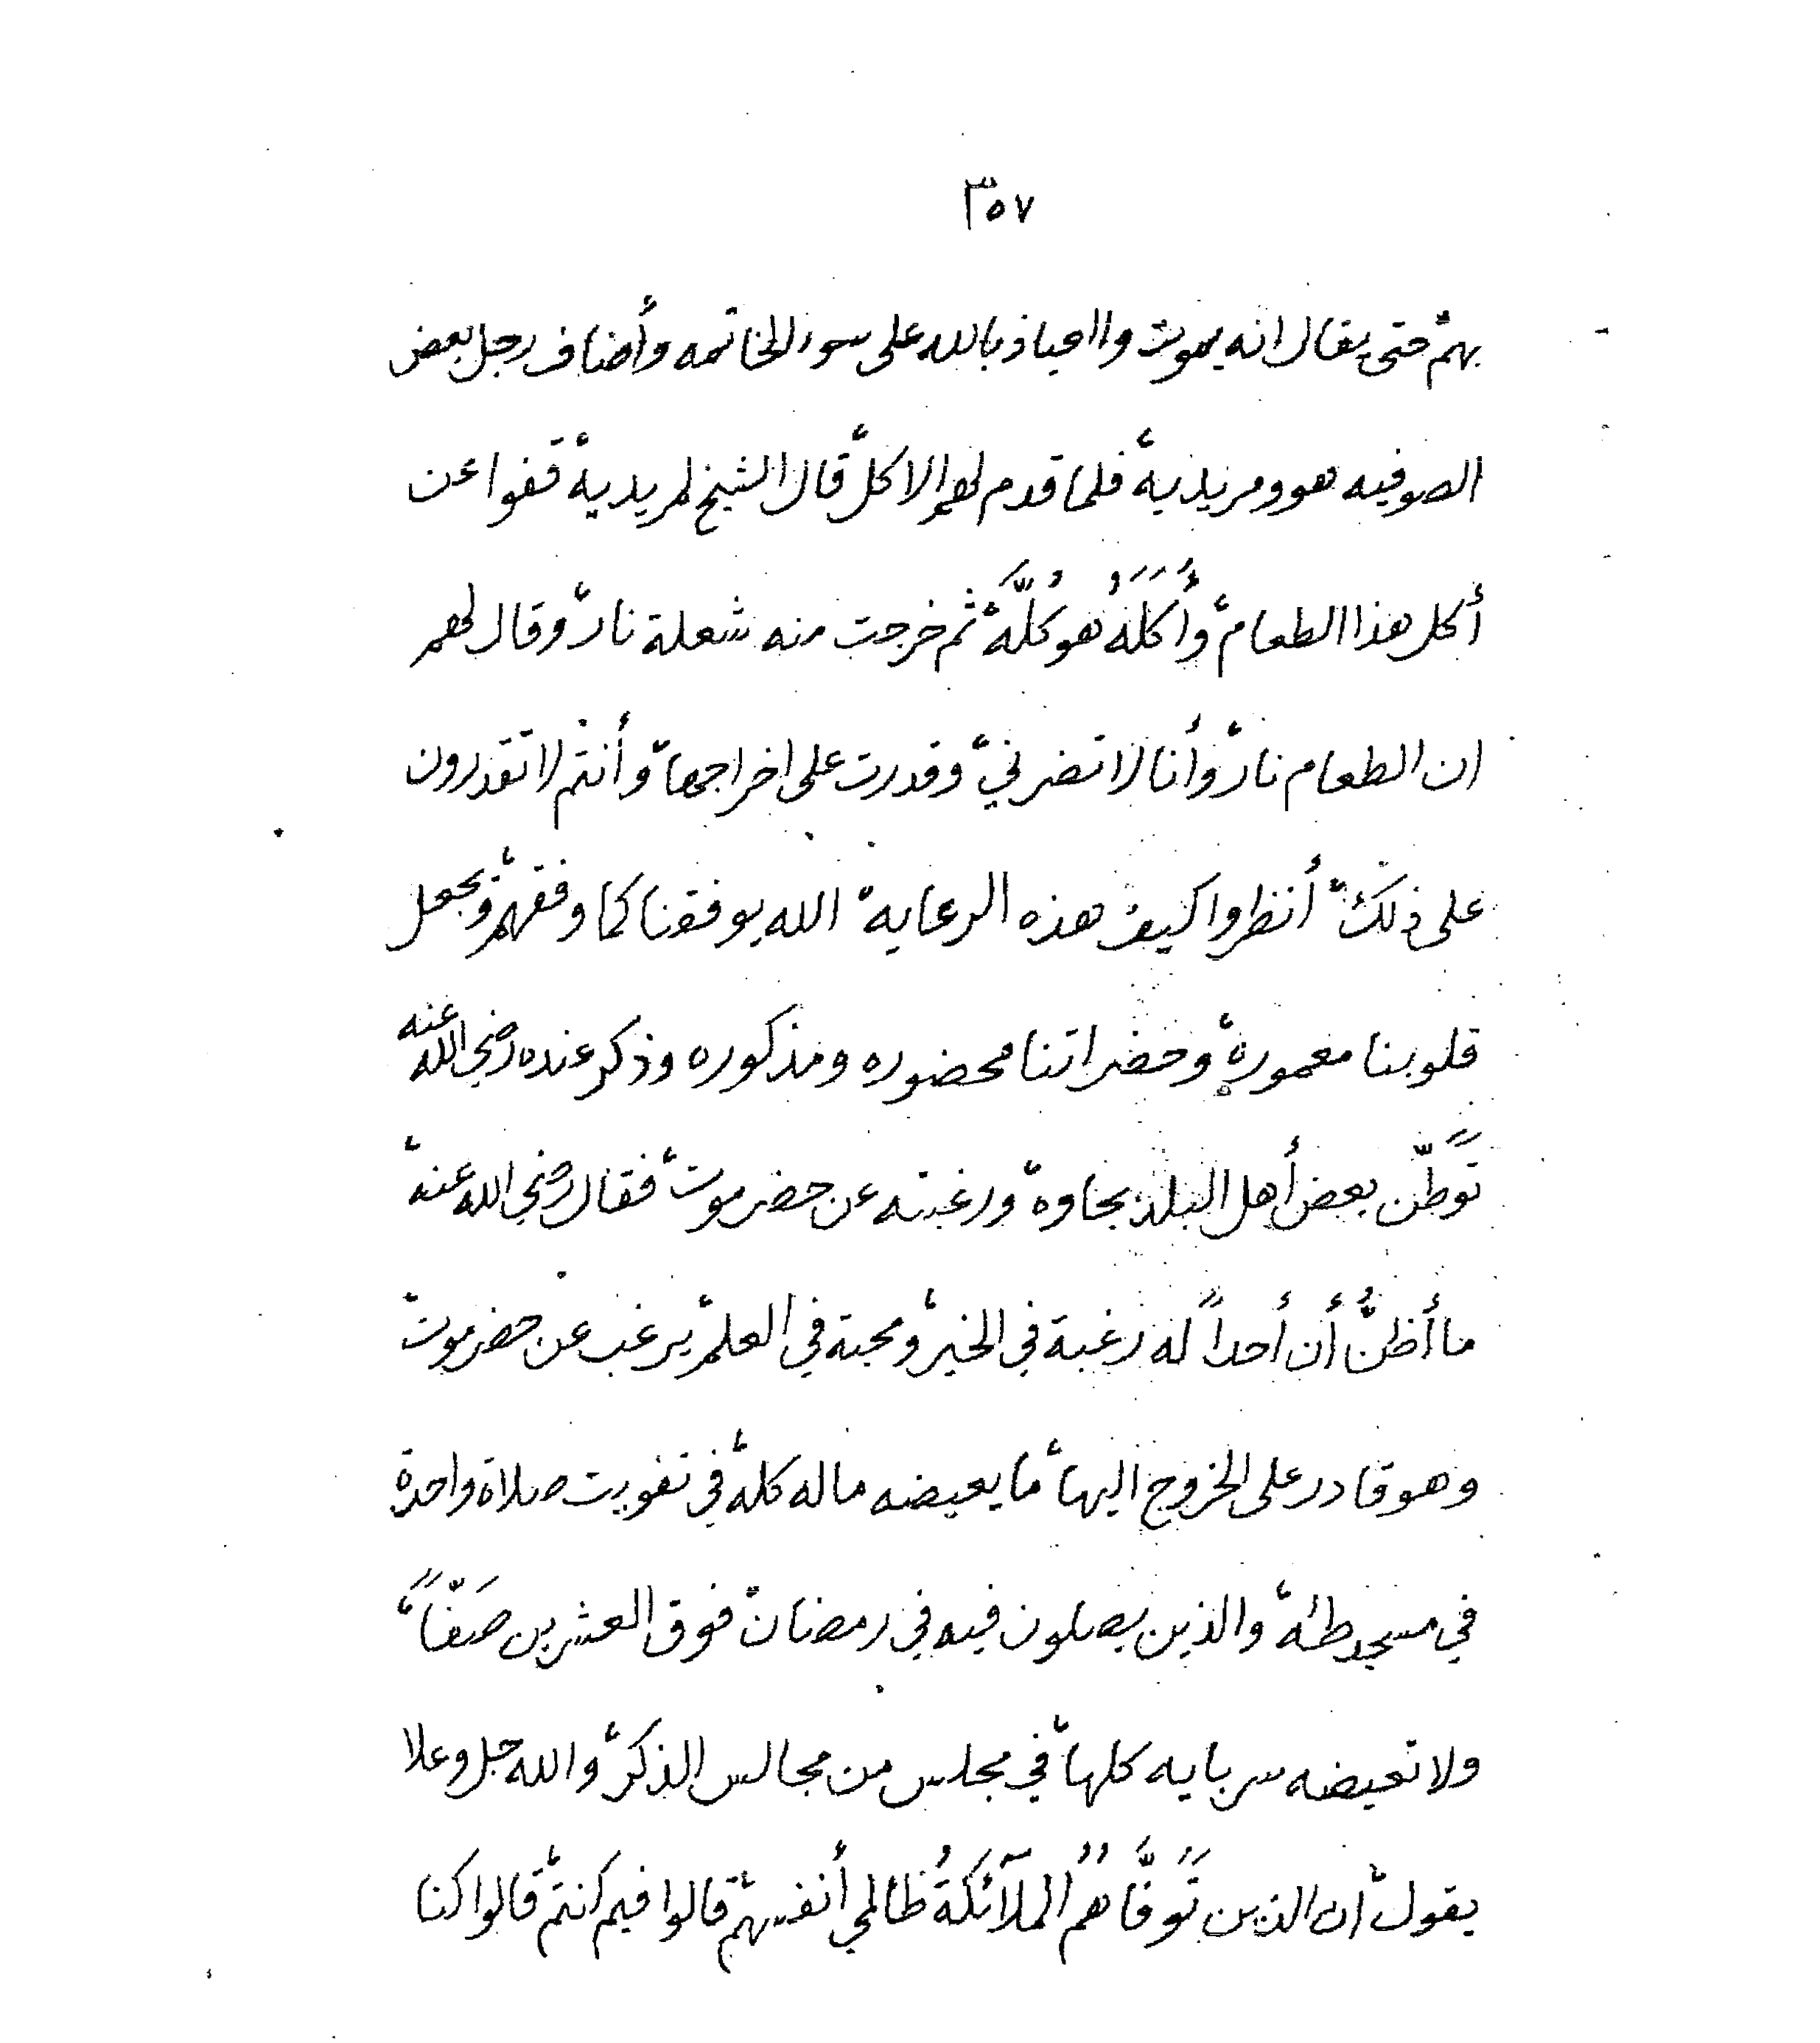 ٣٥٧
بهم، حتى يقال انه يموت والعياذ بالله على سوء الخاتمه وأضاف رجل بعض
الصوفيه هو ومريديه، فلما قدم لهم الاكل، قال الشيخ لمريديه، قفوا عن
أكل هذا الطعام، وأُكَلَهُ هو كُلَّهَ، ثم خرجت منه شعلة نار، وقال لهم
ان الطعام نار، وأنا لا تضرني، وقدرت على اخراجها، وأنتم لا تقدرون
على ذلك، أنظروا كيف هذه الرعايه، الله يوفقنا كما وفقهم، ويجعل
قلوبنا معموره، وحضراتنا محضوره ومذكوره وذكر عنده رضي الله عنه
تَوَطّن بعض أهل البلد بجاوه، ورغبته عن حضرموت، فقال رضي الله عنه،
ما أظنُّ أن أحداً له رغبة في الخير، ومحبة في العلم، يرغب عن حضرموت،
وهو قادر على الخروج اليها، ما يعيضه ماله كله، في تفويت صلاة واحدة
في مسجد طه، والذين يصلون فيه في رمضان، فوق العشرين صَفّاً،
ولا تعيضه سربايه كلها، في مجلس من مجالس الذكر، والله جل وعلا
يقول، ان الذين تَوَفَّاهُمُ الملآئكَةُ ظالمي أنفسهم، قالوا فيم كنتم، قالوا كنا